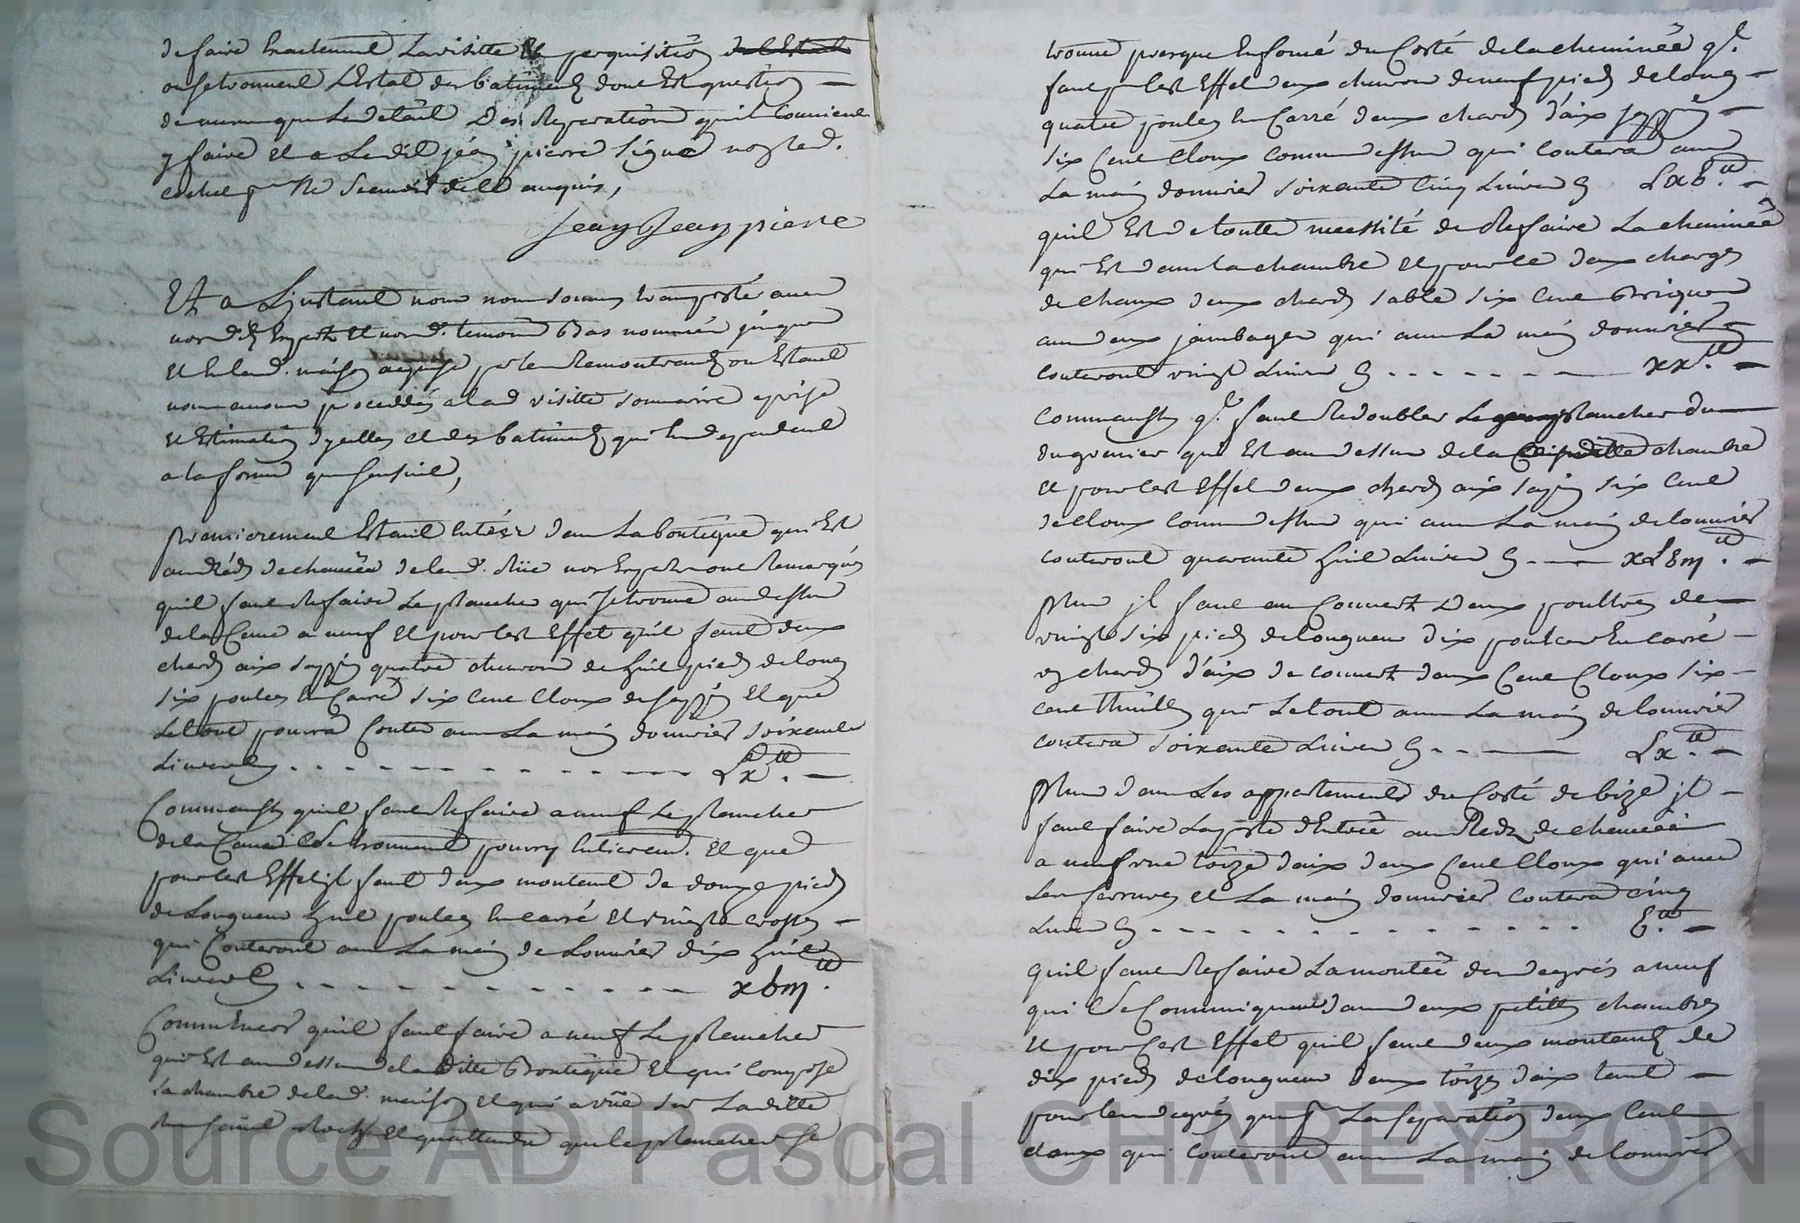 de faire exactement la visitte et perquisition
ou se trouvent l'estat des batiments dont est question
de meme que le detail des reparations qu'il convient
y faire et a ledit jean pierre signé
Jean Jean pierre
Et a l'instant nous nous sommes transporté avec
nos dits experts et nosd. temoins bas nommés jusques
et en lad. maison acquise par les remontrants ou estant
nous avons procedé a lad visitte sommaire prise
et estimation d'ycelles et des batiments qui en dependent
a la forme que sensuit,
premierement estant entrés dans la boutique qui est
au rés de chaussée de lad. rüe nos experts ont remarqué
quil faut refaire le plancher qui se trouve au dessus
de la cave a neuf et pour cest effet quil faut deux
chards aix sappin quatre chevrons de huit pieds de long
six pouces en carré six cent cloux de sappin et que
le tout pourra couter avec la main d'ouvrier soixante
livres Cy . . . . . . Lx tt. —
Comm'aussy quil faut refaire a neuf le plancher
de la cave se trouvent pourry entierem. et que
pour cest effet il faut deux montent de douze pieds
de longueur huit pouces en carré et vingt
qui couteront avec la main de l'ouvrier dix huit
livres Cy . . . . . . xbiij tt.
quil faut faire a neuf le plancher
qui est au dessus de la ditte boutique et qui compose
la chambre de lad. maison et qui a vüe sur la ditte
que le plancher se
trouve presque enfoncé du costé de la cheminée ql.
faut pr. cest effet deux chevrons de neuf pieds de long —
quatre pouces en carré deux chards d'aix sappin —
six cent cloux comme dessus qui coutera avec
la main d'ouvrier soixante cinq livres Cy Lxb tt. —
quil est de toutte necessité de reffaire la cheminée
qui est dans la chambre et pour ce deux charges
de chaux deux chards sable six cent briques
avec deux jambages qui avec la main d'ouvrier
couteront vingt livres Cy . . . . . . xx tt. —
comm'aussy ql. faut redoubler le plancher du
du grenier qui est au dessus de la chambre
et pour cest effet deux chards aix sapin six cent
de cloux comme dessus qui avec la main de l'ouvrier
couteront quarante huit livres Cy . . . xLbiij tt. —
plus jl faut au couvert deux pouttres de
vingt six pieds de longueur dix pouces en carré —
chards d'aix de couvert deux cent cloux six —
cent thuilles qui le tout avec la main de l'ouvrier
coutera soixante livres Cy . . — Lx tt. —
plus dans les appartements du costé de bize jl —
faut faire la porte d'entrée au redz de chaussée
a neuf une toize d'aix deux cent cloux qui avec
les ferrures et la main d'ouvrier coutera cinq
livres Cy . . . . . . b tt. —
quil faut refaire la montée des degrés a neuf
qui se communiquent dans deux petittes chambres
et pour cest effet quil faut deux montents de
dix pieds de longueur deux toizes d'aix tant —
pour les degrés que pr. la separation deux cent
cloux qui couteront avec la main de l'ouvrier
Source AD Pascal CHAREYRON